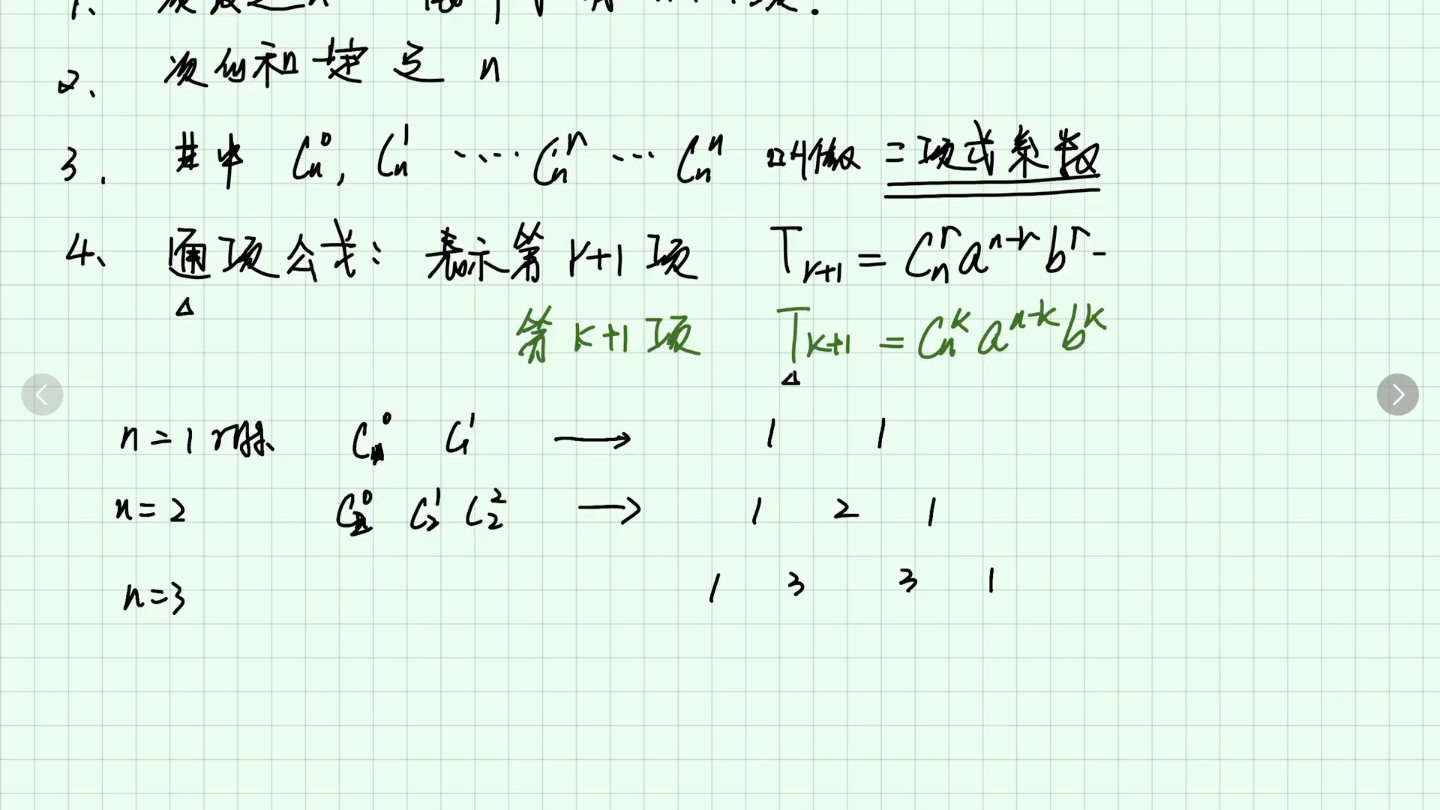 2、 次的和一定是 n
3. 其中 Cₙ⁰, Cₙ¹ ···· Cₙʳ ··· Cₙⁿ 叫做 二项式系数
4、 通项公式: 表示第 r+1 项 Tᵣ₊₁ = Cₙʳ aⁿ⁻ʳ bʳ -
第 k+1 项 Tₖ₊₁ = Cₙᵏ aⁿ⁻ᵏ bᵏ
n=1 时 C₁⁰ C₁¹ → 1 1
n=2 C₂⁰ C₂¹ C₂² → 1 2 1
n=3 1 3 3 1